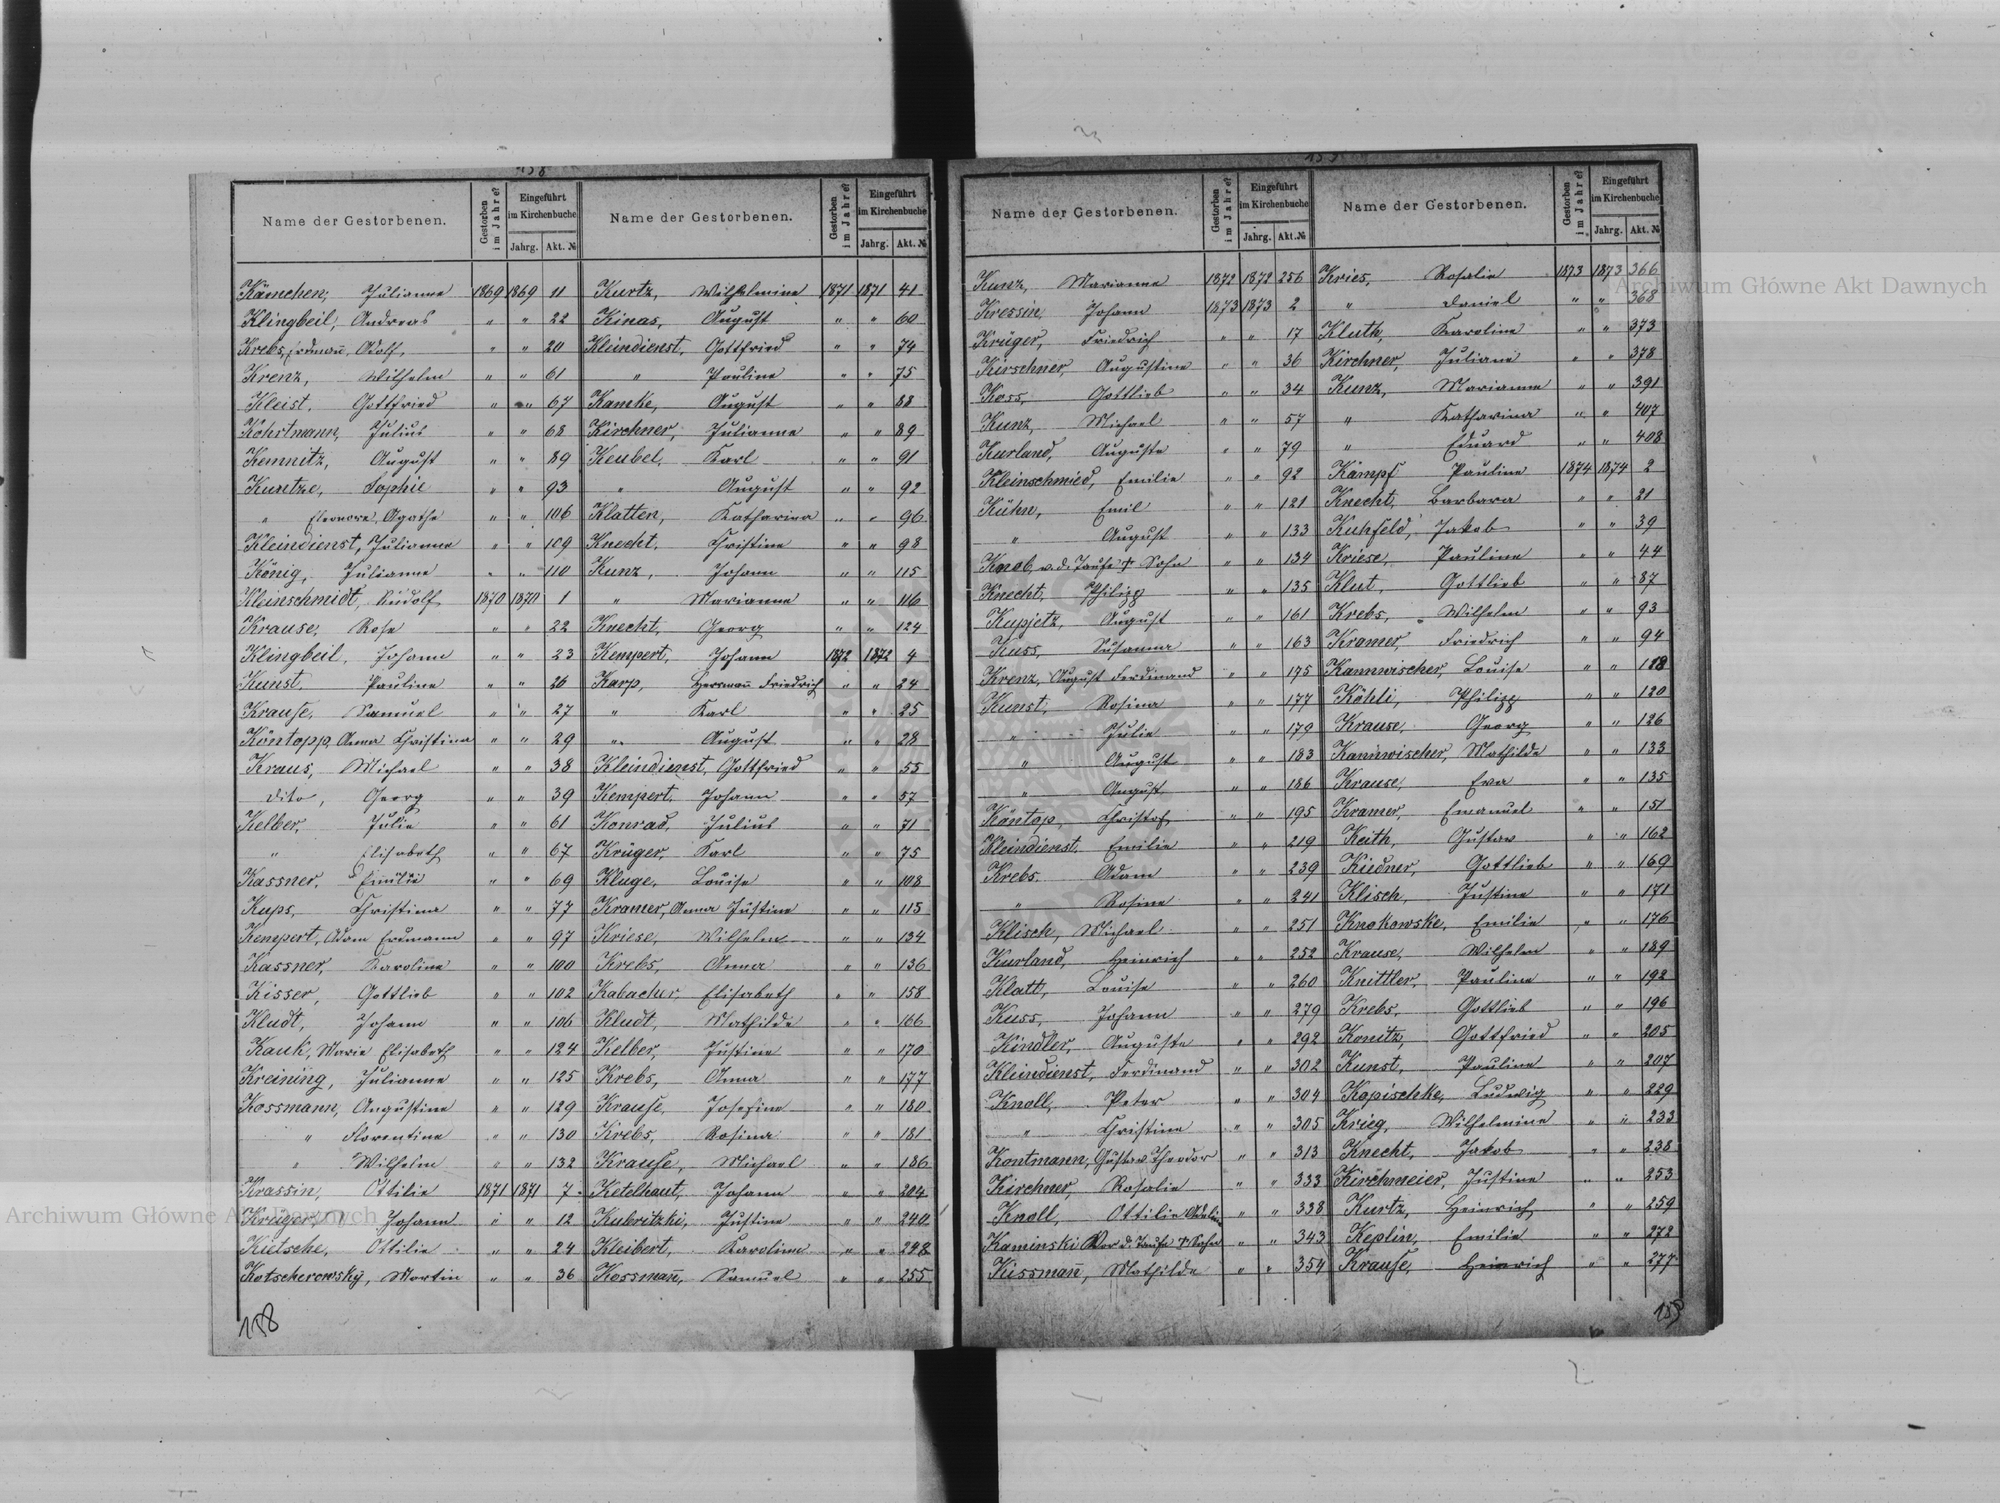 158
Name der Gestorbenen. Gestorben im Jahre? Eingeführt im Kirchenbuche Jahrg. Akt. №
Kämchen, Julianne 1869 1869 11
Klingbeil, Andreas " " 22
Krebs, Erdmañ, Adolf " " 20
Krenz, Wilhelm " " 61
Kleist, Gottfried " " 67
Köhrtmann, Julius " " 68
Kemnitz, August " " 89
Kuntze, Sophie " " 93
" Eleonore, Agathe " " 106
Kleindienst, Julianne " " 109
König, Julianne " " 110
Kleinschmidt, Rudolf 1870 1870 1
Krause, Rosa " " 22
Klingbeil, Johann " " 23
Kunst, Pauline " " 26
Krause, Samuel " " 27
Köntopp, Anna Christina " " 29
Kraus, Michael " " 38
dito, Georg " " 39
Kelber, Julie " " 61
" Elisabeth " " 67
Kassner, Emilie " " 69
Kups, Christina " " 77
Kempert, Adam Erdmann " " 97
Kassner, Karoline " " 100
Kisser, Gottlieb " " 102
Kludt, Johann " " 106
Kauk, Marie Elisabeth " " 124
Kreining, Julianne " " 125
Kossmann, Augustine " " 129
" Florentine " " 130
" Wilhelm " " 132
Krassin, Ottilie 1871 1871 7
Krüger, Johann " " 12
Kietsche, Ottilie " " 24
Kotscherowsky, Martin " " 36
158
Name der Gestorbenen. Gestorben im Jahre? Eingeführt im Kirchenbuche Jahrg. Akt. №
Kurtz, Wilhelmine 1871 1871 41
Kinas, August " " 60
Kleindienst, Gottfried " " 74
" Pauline " " 75
Kamke, August " " 88
Kirchner, Julianne " " 89
Keubel, Karl " " 91
" August " " 92
Klatten, Katharina " " 96
Knecht, Christine " " 98
Kunz, Johann " " 115
" Marianne " " 116
Knecht, Georg " " 124
Kempert, Johann 1872 1872 4
Karp, Herrmañ Friedrich " " 24
" Karl " " 25
" August " " 28
Kleindienst, Gottfried " " 55
Kempert, Johann " " 57
Konrad, Julius " " 71
Krüger, Karl " " 75
Kluge, Louise " " 108
Kramer, Anna Justine " " 115
Kriese, Wilhelm " " 134
Krebs, Anna " " 136
Kabacher, Elisabeth " " 158
Kludt, Mathilde " " 166
Kelber, Justine " " 170
Krebs, Anna " " 177
Krause, Josefine " " 180
Krebs, Rosina " " 181
Krause, Michael " " 186
Ketelhaut, Johann " " 204
Kubritzki, Justine " " 240
Kleibert, Karoline " " 248
Kossmañ, Samuel " " 255
159
Name der Gestorbenen. Gestorben im Jahre? Eingeführt im Kirchenbuche Jahrg. Akt. №
Kunz, Marianne 1872 1872 256
Kressin, Johann 1873 1873 2
Krüger, Friedrich " " 17
Kirschner, Augustine " " 36
Koss, Gottlieb " " 34
Kunz, Michael " " 57
Kurland, Auguste " " 79
Kleinschmied, Emilie " " 92
Kühn, Emil " " 121
" August " " 133
Knob, v. d. Taufe † Sohn " " 134
Knecht, Philipp " " 135
Kupjetz, August " " 161
Kuss, Susanna " " 163
Krenz, August Ferdinand " " 175
Kunst, Rosina " " 177
" Julie " " 179
" August " " 183
" August " " 186
Köntop, Christof " " 195
Kleindienst, Emilie " " 219
Krebs, Adam " " 239
" Rosine " " 241
Klisch, Michael " " 251
Kurland, Heinrich " " 252
Klatt, Louise " " 260
Kuss, Johann " " 279
Kindler, Auguste " " 292
Kleindienst, Ferdinand " " 302
Knoll, Peter " " 304
" Christine " " 305
Kontmann, Gustav Theodor " " 313
Kirchner, Rosalie " " 333
Knoll, Ottilie " " 338
Kaminski Vor d. Taufe † Sohn " " 343
Kissmañ, Mathilde " " 354
Name der Gestorbenen. Gestorben im Jahre? Eingeführt im Kirchenbuche Jahrg. Akt. №
Kries, Rosalie 1873 1873 366
" Daniel " " 368
Kluth, Karoline " " 373
Kirchner, Juliane " " 378
Kunz, Marianne " " 391
" Katharina " " 407
" Eduard " " 408
Kämpf Pauline 1874 1874 2
Knecht, Barbara " " 21
Kuhfeld, Jakob " " 39
Kriese, Pauline " " 44
Klut, Gottlieb " " 87
Krebs, Wilhelm " " 93
Kramer, Friedrich " " 94
Kannwischer, Louise " " 118
Köhli, Philipp " " 120
Krause, Georg " " 126
Kannwischer, Mathilde " " 133
Krause, Eva " " 135
Kramer, Emanuel " " 151
Keith, Gustav " " 162
Kiedner, Gottlieb " " 169
Klisch, Justine " " 171
Knokowske, Emilie " " 176
Krause, Wilhelm " " 189
Knittler, Pauline " " 192
Krebs, Gottlieb " " 196
Konitz, Gottfried " " 205
Kunst, Pauline " " 207
Kopischke, Ludwig " " 229
Krieg, Wilhelmine " " 233
Knecht, Jakob " " 238
Kirchmeier, Justine " " 253
Kurtz, Heinrich " " 259
Keplin, Emilie " " 272
Krause, Heinrich " " 277
159
Archiwum Główne Akt Dawnych
Archiwum Główne Akt Dawnych